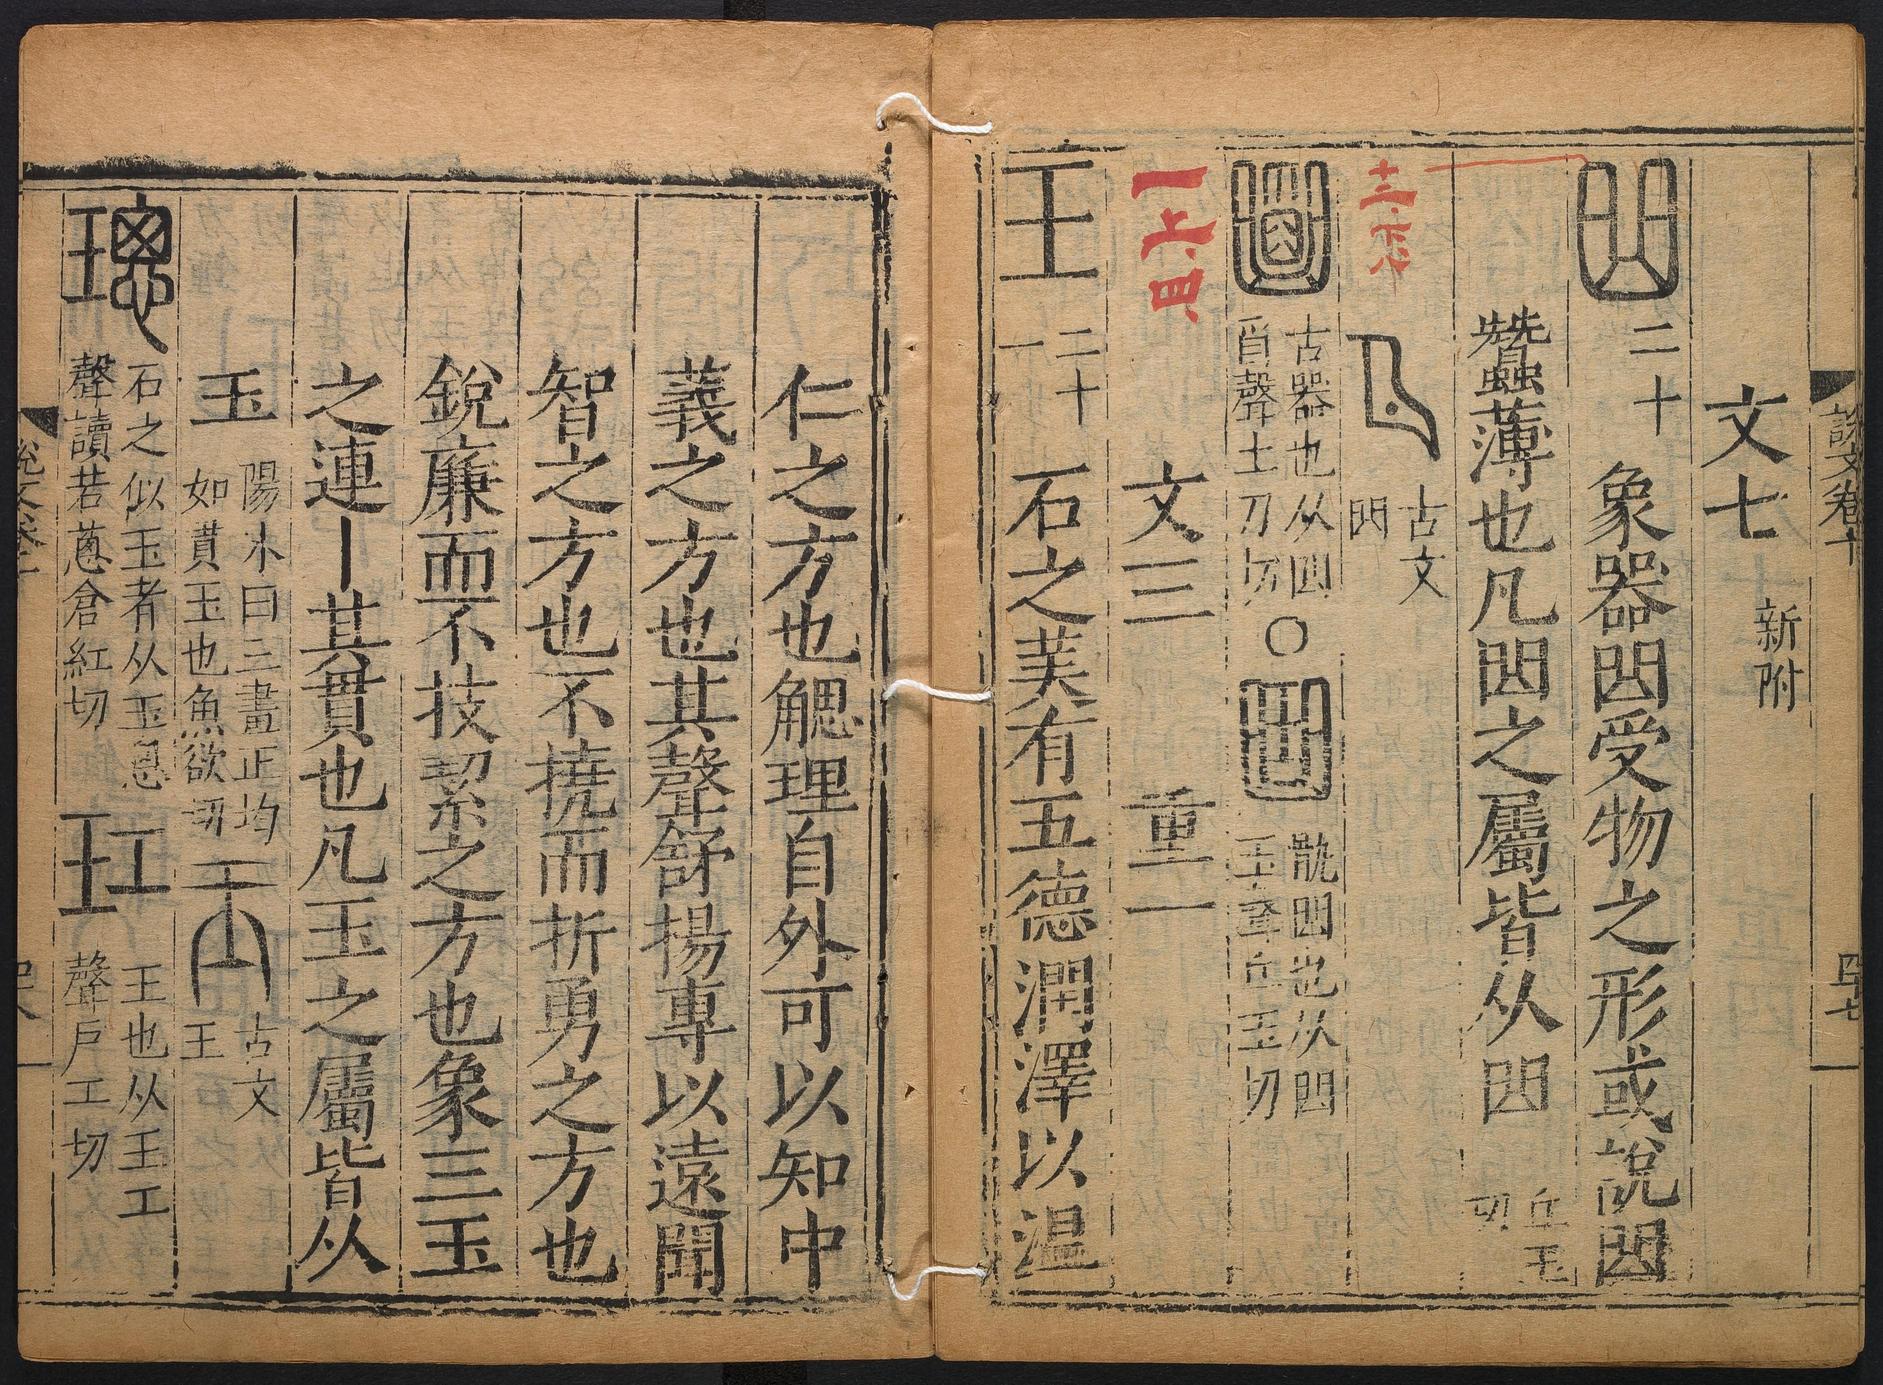 說文卷十
四七
文七
新附
二十
象器曲受物之形或說曲
蠶薄也凡曲之屬皆从曲
丘玉
切
古文
曲
古器也从曲
舀聲土刀切
〇
骫曲也从曲
玉聲丘玉切
一上六四
文三
重一
王
二十
一
石之美有五德潤澤以溫
仁之方也䚡理自外可以知中
義之方也其聲舒揚專以遠聞
智之方也不撓而折勇之方也
銳廉而不技絜之方也象三玉
之連丨其貫也凡玉之屬皆从
玉
陽冰曰三畫正均
如貫玉也魚欲切
古文
玉
璁
石之似玉者从玉悤
聲讀若蔥倉紅切
玒
玉也从玉工
聲戶工切